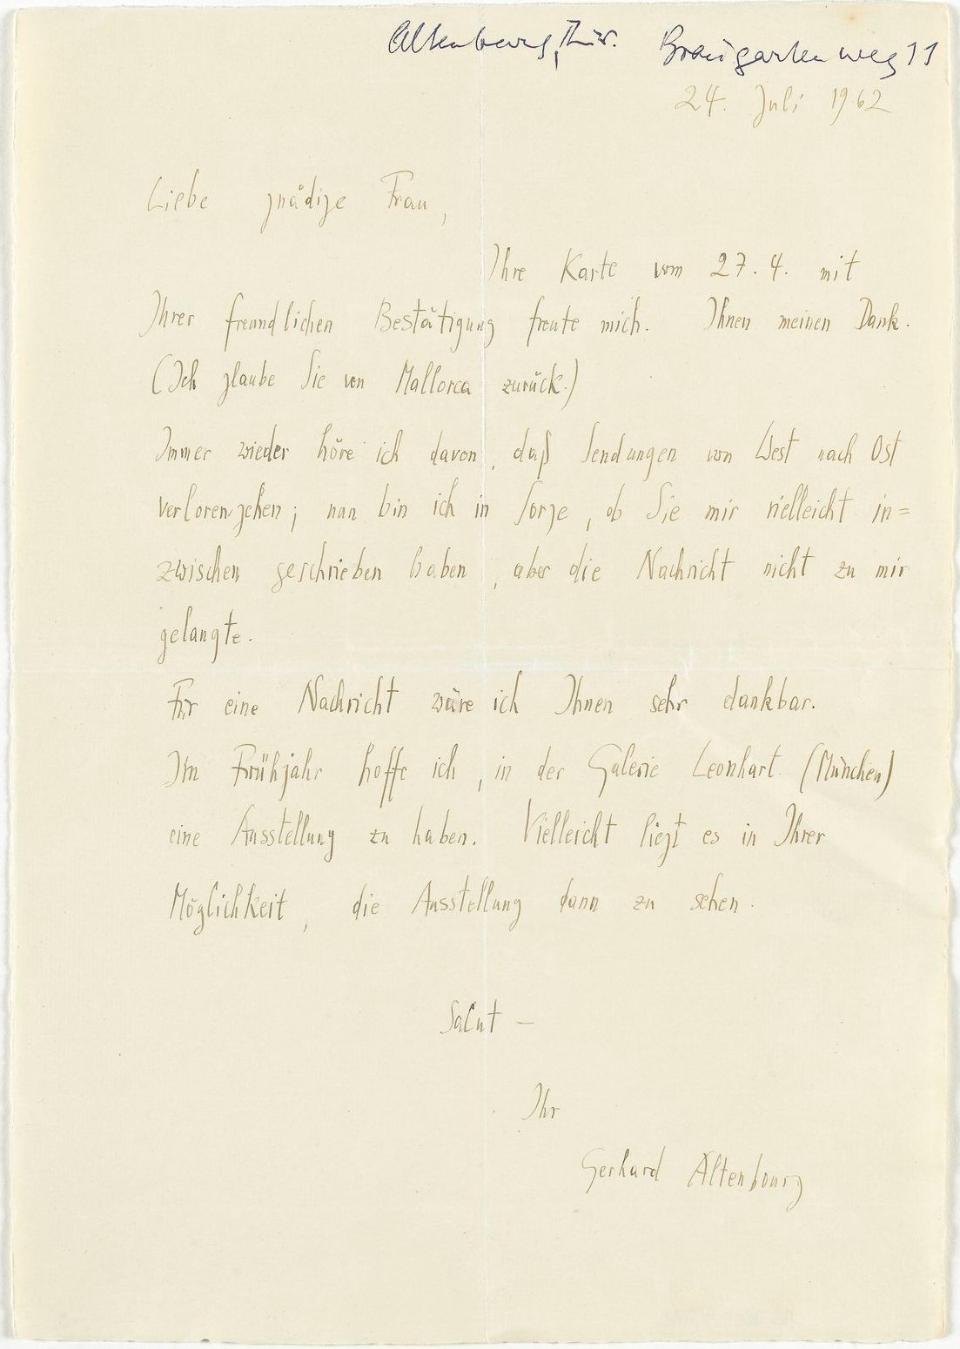 Altenburg, Thür. Braugartenweg 11
24. Juli 1962
Liebe gnädige Frau,
Ihre Karte vom 27. 4. mit
Ihrer freundlichen Bestätigung freute mich. Ihnen meinen Dank.
(Ich glaube Sie von Mallorca zurück.)
Immer wieder höre ich davon, daß Sendungen von West nach Ost
verlorengehen; nun bin ich in Sorge, ob Sie mir vielleicht in=
zwischen geschrieben haben, aber die Nachricht nicht zu mir
gelangte.
Für eine Nachricht wäre ich Ihnen sehr dankbar.
Im Frühjahr hoffe ich, in der Galerie Leonhart (München)
eine Ausstellung zu haben. Vielleicht liegt es in Ihrer
Möglichkeit, die Ausstellung dann zu sehen.
Salut —
Ihr
Gerhard Altenbourg